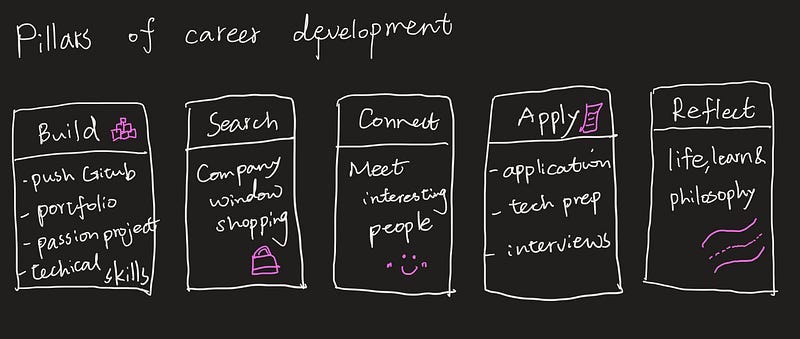 Pillars of career development
Build
- push Github
- portfolio
- passion project
- techical skills
Search
Company
window
shopping
Connect
Meet
interesting
people
Apply
- application
- tech prep
- interviews
Reflect
life, learn &
philosophy